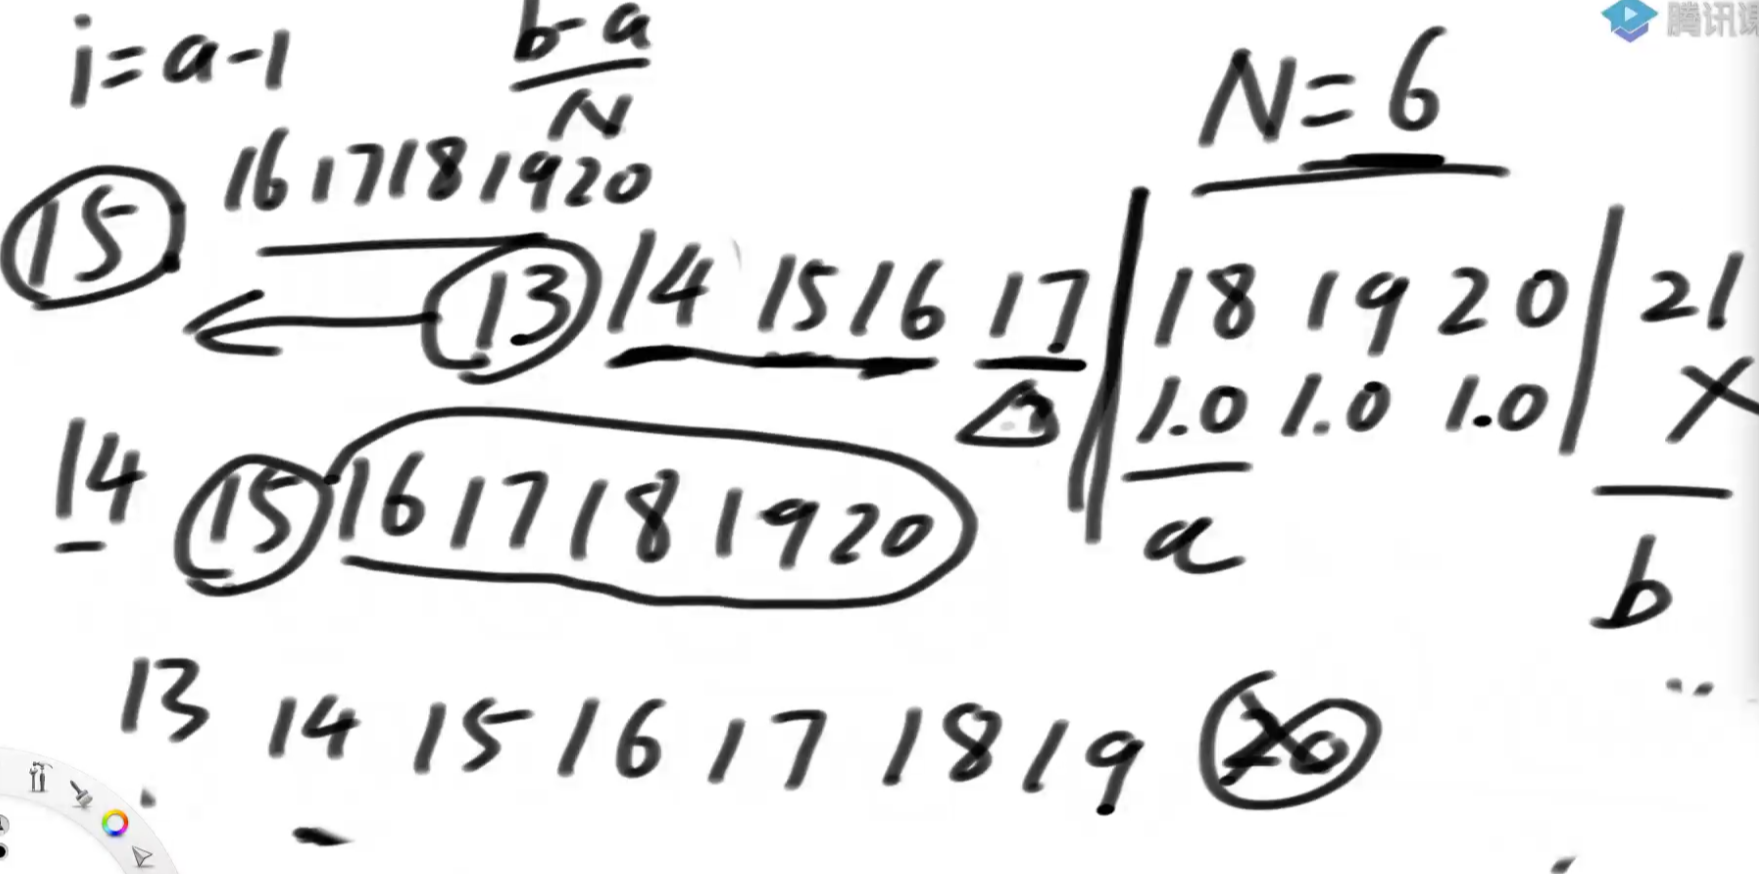 i=a-1
b-a
N
N=6
腾讯课
15
16 17 18 19 20
13 14 15 16 17 18 19 20 21
1.0 1.0 1.0 X
a
b
14 15 16 17 18 19 20
13 14 15 16 17 18 19 20